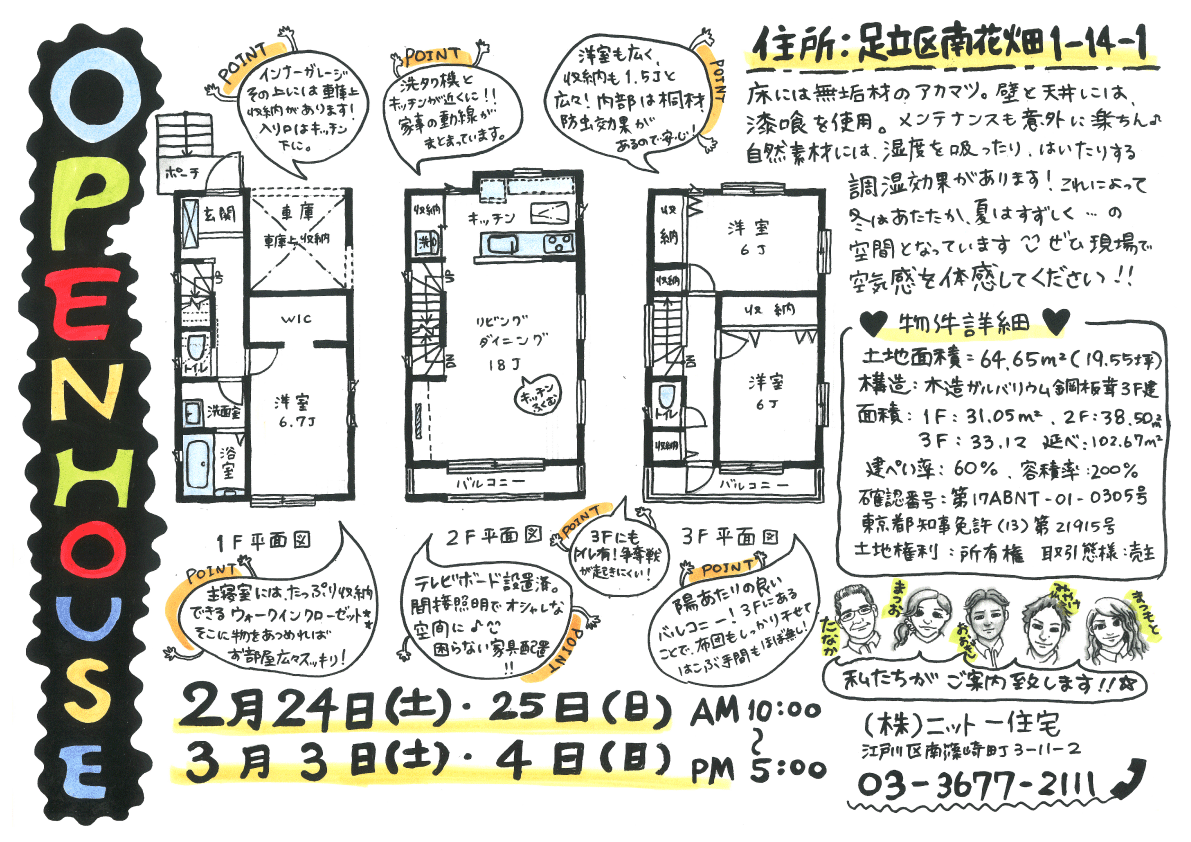 OPENHOUSE
POINT
インナーガレージ
その上には車庫上
収納があります!
入り口はキッチン
下に。
POINT
洗タク機と
キッチンが近くに!!
家事の動線が
まとまっています。
POINT
洋室も広く、
収納も1.5Jと
広々!内部は桐材
防虫効果が
あるので安心!
住所:足立区南花畑1-14-1
床には無垢材のアカマツ。壁と天井には、
漆喰を使用。メンテナンスも意外に楽ちん♪
自然素材には、湿度を吸ったり、はいたりする
調湿効果があります!これによって
冬はあたたか、夏はすずしく…の
空間となっています ぜひ現場で
空気感を体感してください!!
ポーチ
玄関
車庫
車庫上収納
WIC
トイレ
洗面室
洋室
6.7J
浴室
1F平面図
収納
キッチン
洗
UP
DN
リビング
ダイニング
18J
キッチン
ふくむ
バルコニー
2F平面図
収納
洋室
6J
収納
収納
DN
洋室
6J
トイレ
収納
バルコニー
3F平面図
♥物件詳細♥
土地面積:64.65m²(19.55坪)
構造:木造ガルバリウム鋼板葺3F建
面積:1F:31.05m²、2F:38.50m²
3F:33.12 延べ:102.67m²
建ぺい率:60%、容積率:200%
確認番号:第17ABNT-01-0305号
東京都知事免許(13)第21915号
土地権利:所有権 取引態様:売主
POINT
主寝室には、たっぷり収納
できるウォークインクローゼット★
そこに物をあつめれば
お部屋広々スッキリ!
POINT
テレビボード設置済。
間接照明でオシャレな
空間に♪
困らない家具配置
!!
POINT
3Fにも
トイレ有!争奪戦
が起きにくい!
POINT
陽あたりの良い
バルコニー!3Fにある
ことで、布団もしっかり干せて
はこぶ手間もほぼ無し!
たなか
まつお
おおぎし
みやけ
まつもと
私たちがご案内致します!!☆
2月24日(土)・25日(日) AM10:00
〜
3月3日(土)・4日(日) PM5:00
(株)ニットー住宅
江戸川区南篠崎町3-11-2
03-3677-2111